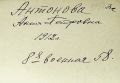 Антонова
Анна Петровна
1912г.
8я военная 58.